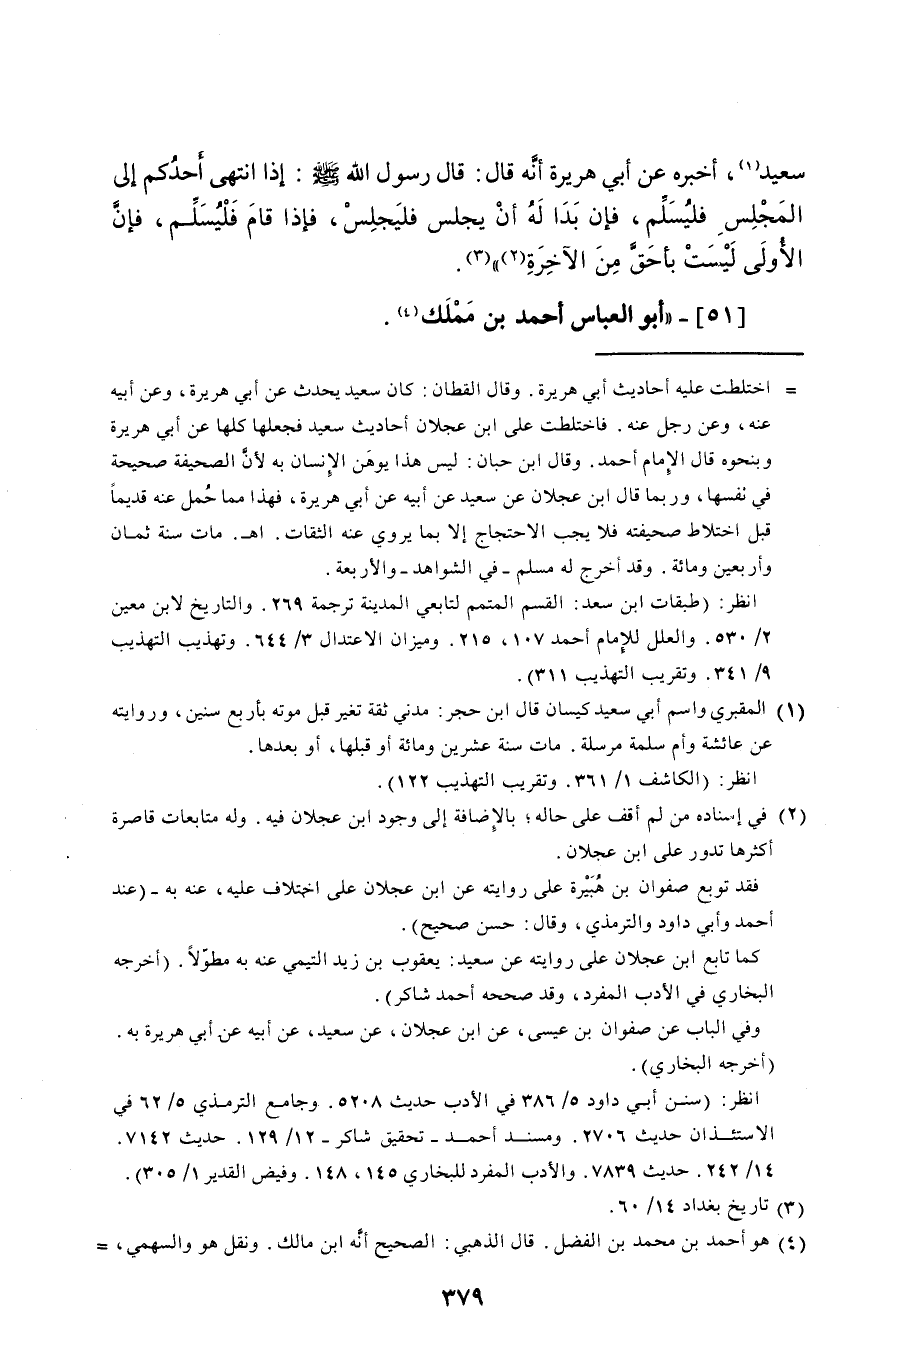 سعيد(١)، أخبره عن أبي هريرة أنَّه قال: قال رسول الله ﷺ : إذا انتهى أَحدُكم إلى
المَجْلِسِ فليُسَلِّم، فإن بَدَا لَهُ أنْ يجلس فليَجلِسْ، فإذا قامَ فَلْيُسَلِّم، فإنَّ
الأُولَى لَيْسَتْ بأحَقَّ مِنَ الآخِرَةِ(٢)»(٣).
[٥١] - «أبو العباس أحمد بن مَمْلَك(٤).
= اختلطت عليه أحاديث أبي هريرة. وقال القطان: كان سعيد يحدث عن أبي هريرة، وعن أبيه
عنه، وعن رجل عنه. فاختلطت على ابن عجلان أحاديث سعيد فجعلها كلها عن أبي هريرة
وبنحوه قال الإمام أحمد. وقال ابن حبان: ليس هذا يوهَن الإنسان به لأنَّ الصحيفة صحيحة
في نفسها، وربما قال ابن عجلان عن سعيد عن أبيه عن أبي هريرة، فهذا مما حُمل عنه قديماً
قبل اختلاط صحيفته فلا يجب الاحتجاج إلا بما يروي عنه الثقات. اهـ. مات سنة ثمـان
وأربعين ومائة. وقد أخرج له مسلم - في الشواهد - والأربعة.
انظر: (طبقات ابن سعد: القسم المتمم لتابعي المدينة ترجمة ٢٦٩. والتاريخ لابن معين
٢/ ٥٣٠. والعلل للإمام أحمد ١٠٧، ٢١٥. وميزان الاعتدال ٣/ ٦٤٤. وتهذيب التهذيب
٩/ ٣٤١. وتقريب التهذيب ٣١١).
(١) المقبري واسم أبي سعيد كيسان قال ابن حجر: مدني ثقة تغير قبل موته بأربع سنين، وروايته
عن عائشة وأم سلمة مرسلة. مات سنة عشرين ومائة أو قبلها، أو بعدها.
انظر: (الكاشف ١/ ٣٦١. وتقريب التهذيب ١٢٢).
(٢) في إسناده من لم أقف على حاله؛ بالإضافة إلى وجود ابن عجلان فيه. وله متابعات قاصرة
أكثرها تدور على ابن عجلان.
فقد توبع صفوان بن هُبَيْرة على روايته عن ابن عجلان على اختلاف عليه، عنه به - (عند
أحمد وأبي داود والترمذي، وقال: حسن صحيح).
كما تابع ابن عجلان على روايته عن سعيد: يعقوب بن زيد التيمي عنه به مطوّلاً. (أخرجه
البخاري في الأدب المفرد، وقد صححه أحمد شاكر).
وفي الباب عن صفوان بن عيسى، عن ابن عجلان، عن سعيد، عن أبيه عن أبي هريرة به.
(أخرجه البخاري).
انظر: (سنـن أبـي داود ٥/ ٣٨٦ في الأدب حديث ٥٢٠٨. وجامع الترمـذي ٥/ ٦٢ في
الاستئـذان حديث ٢٧٠٦. ومسنـد أحمـد - تحقيق شاكر - ١٢/ ١٢٩. حديث ٧١٤٢.
١٤/ ٢٤٢. حديث ٧٨٣٩. والأدب المفرد للبخاري ١٤٥، ١٤٨. وفيض القدير ١/ ٣٠٥).
(٣) تاريخ بغداد ١٤/ ٦٠.
(٤) هو أحمد بن محمد بن الفضل. قال الذهبي: الصحيح أنَّه ابن مالك. ونقل هو والسهمي، =
٣٧٩